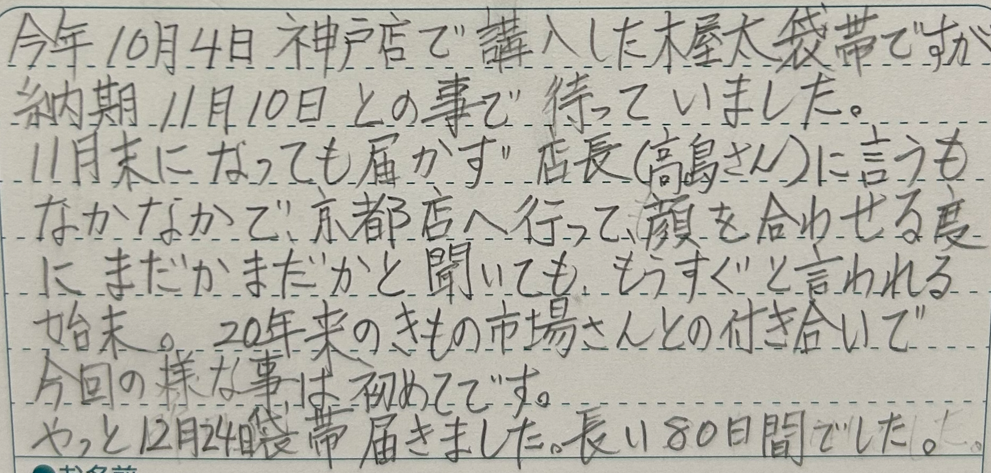 今年10月4日 神戸店で講入した木屋太袋帯ですが
納期 11月10日 との事で 待って いました。
11月末に なっても届かず 店長(高島さん)に言うも
なかなかで、京都店へ行って、顔を合わせる度
に まだかまだかと 聞いても、もうすぐと言われる
始末。20年来のきもの市場さんとの付き合いで
今回の様な事は 初めてです。
やっと12月24日袋帯届きました。長い80日間でした。
●お名前